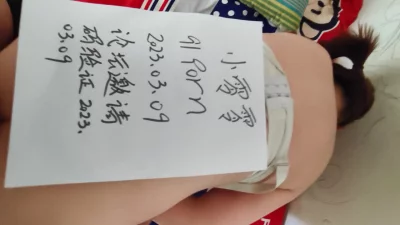 小
91porn
2023.03.09
论坛邀请
码验证 2023.
03.09